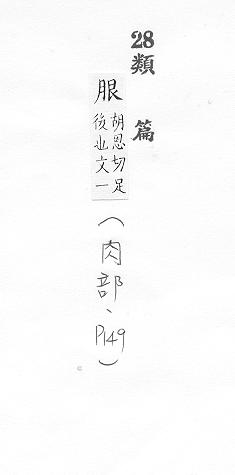 28 類篇
胡恩切足
後也文一
(肉部、P149)